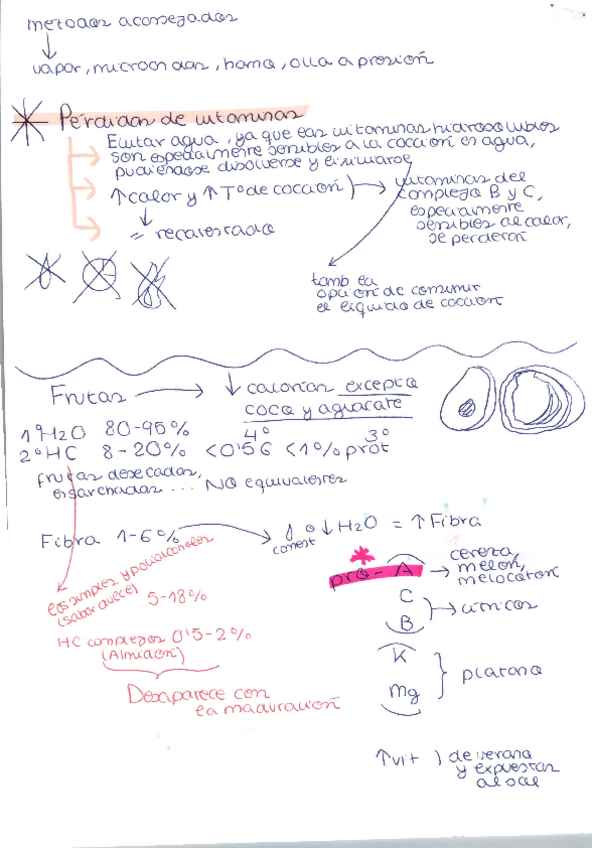 metodos aconsejados
vapor, microondas, horno, olla a presión
Pérdidas de vitaminas
Evitar agua, ya que las vitaminas hidrosolubles
son especialmente sensibles a la cocción en agua,
pudiéndose disolverse y eliminarse
↑ calor y ↑ Tº de cocción) → vitaminas del
complejo B y C,
especialmente
sensibles al calor,
se perderán
= recalentado
tamb la
opción de consumir
el líquido de cocción
Frutas → ↓ calorías excepto
coco y aguacate
1º H2O 80-95%
2º HC 8-20% 4º <0'5G 3º <1% prot
frutas desecadas,
escarchadas ... NO equivalentes
Fibra 1-6% → ↓ H2O = ↑ Fibra
const
los simples y polialcoholes
(sabor dulce) 5-18%
HC complejos 0'5-2%
(Almidón)
Desaparece con
la maduración
pro-A → cereza,
melón,
melocotón
C
B → cítricos
K
Mg } platano
↑ vit ) de verano
y expuestas
al sol